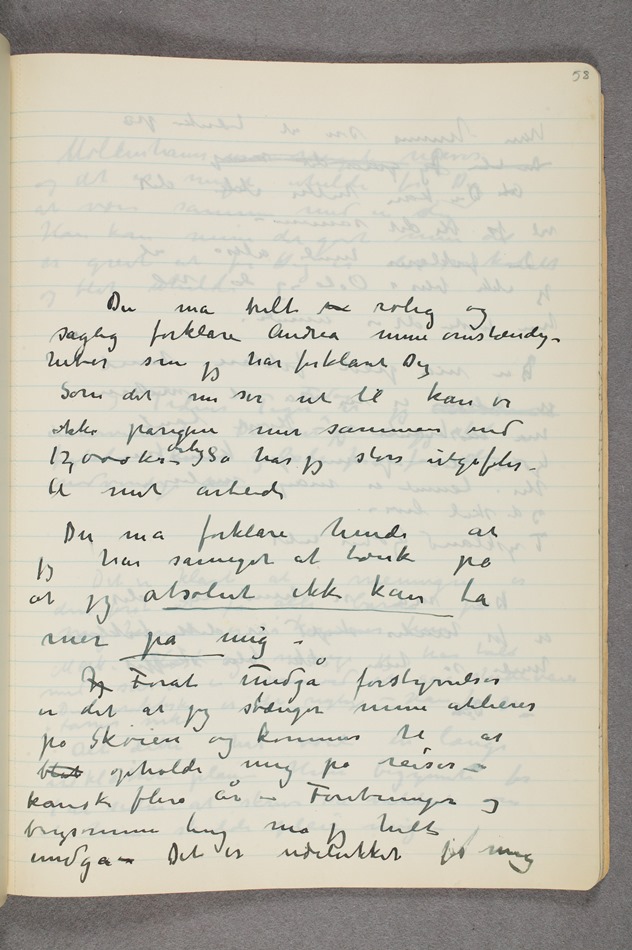 53
Du må helt rolig og
saglig forklare Andrea mine omstændig-
heder som jeg har forklart Dig
Som det nu ser ut til kan vi
ikke mer sammen end
12,000 kr – Så har jeg store utgifter
til mit arbeide
Du må forklare hende at
jeg har så meget at tænke på
at jeg absolut ikke kan ta
mer på mig –
Jeg Forat undgå forstyrrelser
er det at jeg stænger mine atelierer
på Skøien og kommer til at
blot opholde mig på reiser –
kanske flere år – Forretninger og
må jeg helt
undgå – Det er udelukket for mig